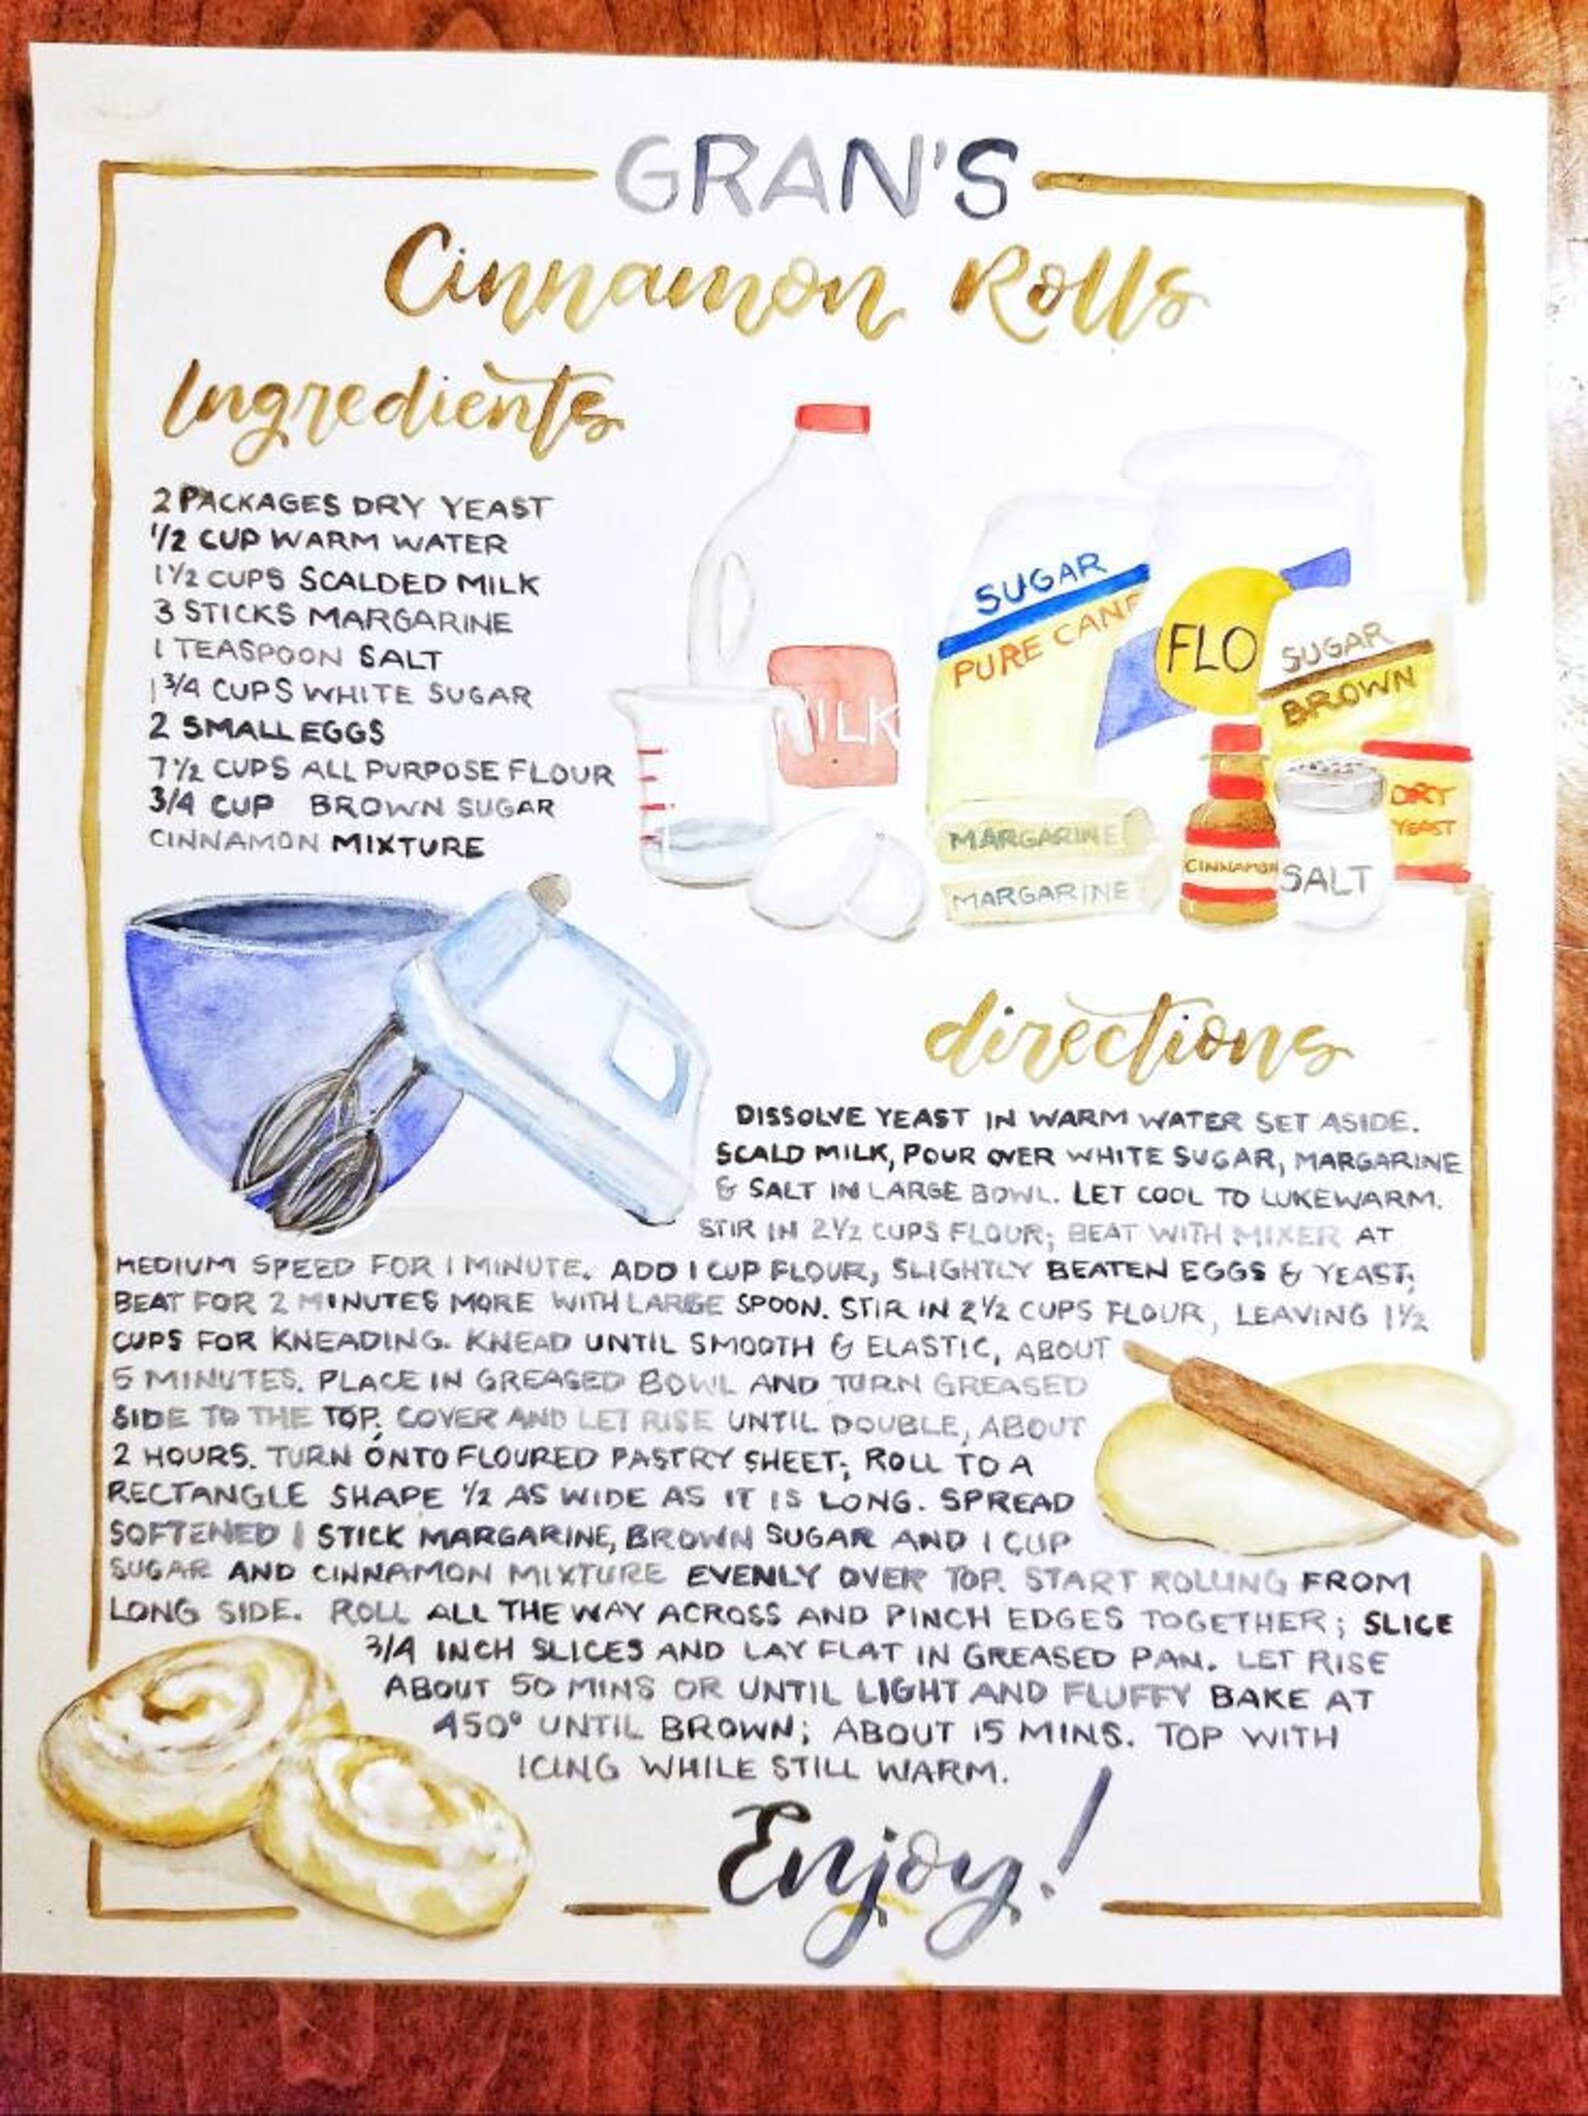 GRAN'S
Cinnamon Rolls
Ingredients
2 PACKAGES DRY YEAST
1/2 CUP WARM WATER
1 1/2 CUPS SCALDED MILK
3 STICKS MARGARINE
1 TEASPOON SALT
1 3/4 CUPS WHITE SUGAR
2 SMALL EGGS
7 1/2 CUPS ALL PURPOSE FLOUR
3/4 CUP BROWN SUGAR
CINNAMON MIXTURE
MILK
SUGAR
PURE CANE
FLO
SUGAR
BROWN
MARGARINE
MARGARINE
CINNAMON
SALT
DRY
YEAST
directions
DISSOLVE YEAST IN WARM WATER SET ASIDE.
SCALD MILK, POUR OVER WHITE SUGAR, MARGARINE
& SALT IN LARGE BOWL. LET COOL TO LUKEWARM.
STIR IN 2 1/2 CUPS FLOUR; BEAT WITH MIXER AT
MEDIUM SPEED FOR 1 MINUTE. ADD 1 CUP FLOUR, SLIGHTLY BEATEN EGGS & YEAST;
BEAT FOR 2 MINUTES MORE WITH LARGE SPOON. STIR IN 2 1/2 CUPS FLOUR, LEAVING 1 1/2
CUPS FOR KNEADING. KNEAD UNTIL SMOOTH & ELASTIC, ABOUT
5 MINUTES. PLACE IN GREASED BOWL AND TURN GREASED
SIDE TO THE TOP. COVER AND LET RISE UNTIL DOUBLE, ABOUT
2 HOURS. TURN ONTO FLOURED PASTRY SHEET; ROLL TO A
RECTANGLE SHAPE 1/2 AS WIDE AS IT IS LONG. SPREAD
SOFTENED 1 STICK MARGARINE, BROWN SUGAR AND 1 CUP
SUGAR AND CINNAMON MIXTURE EVENLY OVER TOP. START ROLLING FROM
LONG SIDE. ROLL ALL THE WAY ACROSS AND PINCH EDGES TOGETHER; SLICE
3/4 INCH SLICES AND LAY FLAT IN GREASED PAN. LET RISE
ABOUT 50 MINS OR UNTIL LIGHT AND FLUFFY BAKE AT
450° UNTIL BROWN; ABOUT 15 MINS. TOP WITH
ICING WHILE STILL WARM.
Enjoy!